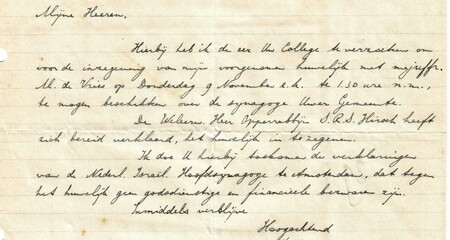 Mijne Heeren,
Hierbij heb ik de eer Uw College te verzoeken om
voor de inzegening van mijn voorgenomen huwelijk met mejuffr.
M. de Vries op Donderdag 9 November e.k. te 1.30 ure n.m.,
te mogen beschikken over de synagoge Uwer Gemeente.
De Weleerw. Heer Opperrabbijn S. R. S. Hirsch heeft
zich bereid verklaard, het huwelijk in te zegenen.
Ik doe U hierbij toekomen de verklaringen
van de Nederl. Israël. Hoofdsynagoge te Amsterdam, dat tegen
het huwelijk geen godsdienstige en financieele bezwaren zijn.
Inmiddels verblijve
Hoogachtend